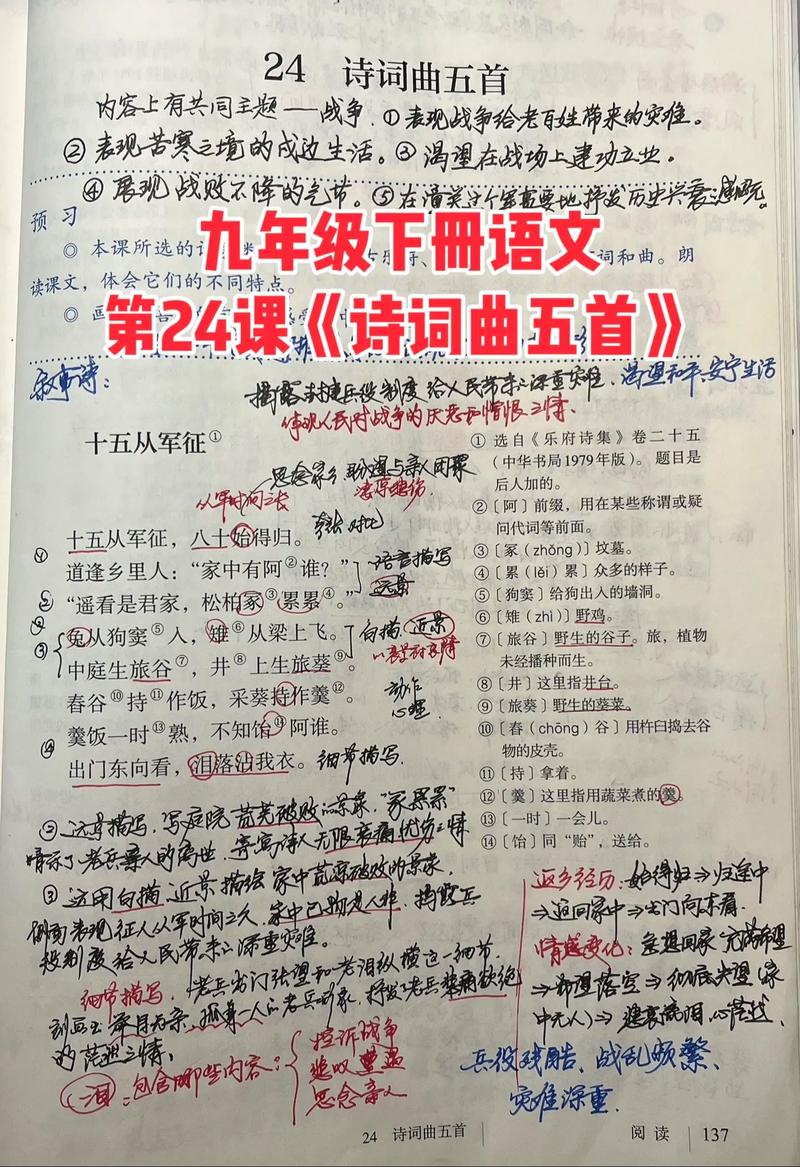 24 诗词曲五首
内容上有共同主题——战争.①表现战争给老百姓带来的灾难。
②表现苦寒之境的戍边生活。③渴望在战场上建功立业。
④展现战败不降的气节。⑤在潼关这个军事要地抒发历史兴衰之感慨
预习
九年级下册语文
◎ 本课所选的 词和曲。朗
读课文，体会它们的不同特点。
第24课《诗词曲五首》
叙事诗：
揭露封建兵役制度给人民带来的深重灾难. 渴望和平、安宁生活
体现人民对战争的厌恶和憎恨之情.
十五从军征①
思念家乡,盼望与亲人团聚
从军时间之长
凄凉悲伤.
夸张 对比
十五从军征，八十始得归。
道逢乡里人：“家中有阿②谁？”
语言描写
远景
“遥看是君家，松柏冢③累累④。”
兔从狗窦⑤入，雉⑥从梁上飞。
白描 近景
以哀景衬哀情
中庭生旅谷⑦，井⑧上生旅葵⑨。
舂谷⑩持⑪作饭，采葵持作羹⑫。
动作
心理
羹饭一时⑬熟，不知饴⑭阿谁。
出门东向看，泪落沾我衣。
细节描写
① 选自《乐府诗集》卷二十五
（中华书局1979年版）。题目是
后人加的。
②〔阿〕前缀，用在某些称谓或疑
问代词等前面。
③〔冢（zhǒng）〕坟墓。
④〔累（léi）累〕众多的样子。
⑤〔狗窦〕给狗出入的墙洞。
⑥〔雉（zhì）〕野鸡。
⑦〔旅谷〕野生的谷子。旅，植物
未经播种而生。
⑧〔井〕这里指井台。
⑨〔旅葵〕野生的葵菜。
⑩〔舂（chōng）谷〕用杵臼捣去谷
物的皮壳。
⑪〔持〕拿着。
⑫〔羹〕这里指用蔬菜煮的羹。
⑬〔一时〕一会儿。
⑭〔饴〕同“贻”，送给。
②远景描写，写庭院荒芜破败的景象，“冢累累”
暗示了老兵亲人的离世，寄寓诗人无限哀痛忧伤之情
③运用白描 近景描绘家中荒凉破败的景象，
侧面表现征人从军时间之久，家中已物是人非，揭露兵
役制度给人民带来的深重灾难。
细节描写，老兵出门张望和老泪纵横这一细节，
刻画出举目无亲，孤身一人的老兵形象，抒发了老兵悲痛欲绝
的茫然之情。
泪：包含哪些内容：
控诉战争
悲叹
思念亲人
返乡经历：始得归⇒归途中
⇒返回家中⇒出门向东看.
情感变化：急想回家 充满希望
⇒希望落空⇒彻底失望（家
中无人）⇒悲哀流泪，心茫然
兵役残酷、战乱频繁、
灾难深重.
24 诗词曲五首
阅读 137